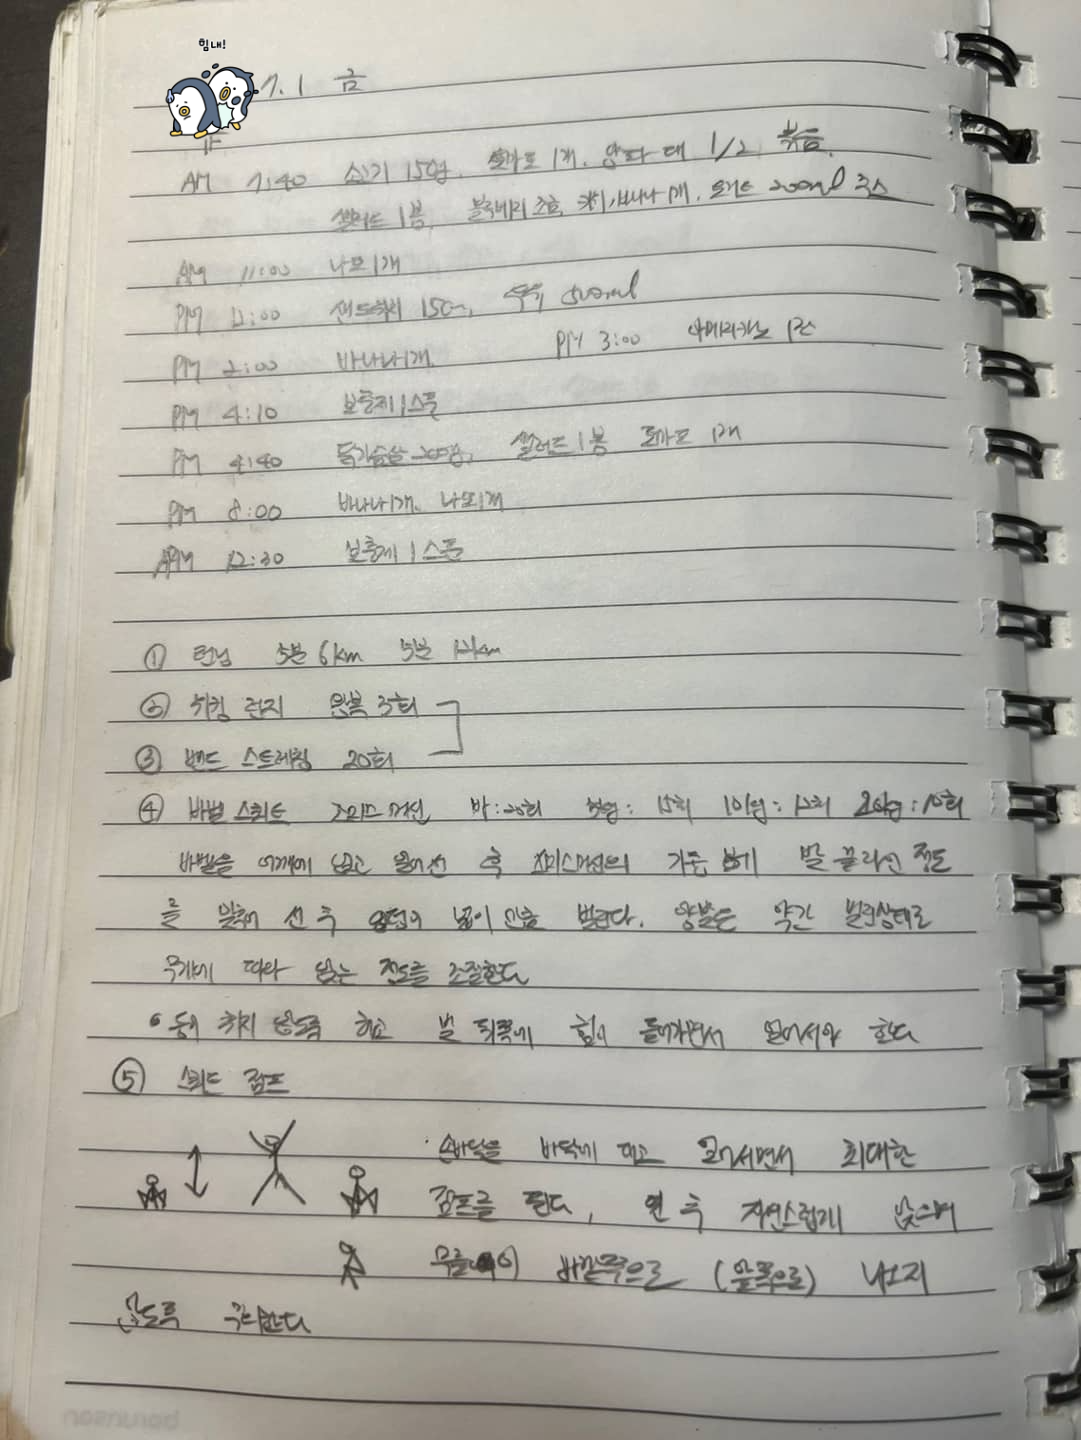 힘내!
7. 1 금
AM 7:40 소고기 150g, 토마토 1개, 양파 대 1/2, 볶음,
샐러드 1봉, 블루베리 조금, 키위, 바나나 1개, 요거트 200ml 주스
AM 11:00
PM 12:00 샌드위치 500ml
PM 2:00 바나나 1개. PM 3:00 아메리카노 1잔
PM 4:10 보충제 1스푼
PM 4:40 닭가슴살 200g, 샐러드 1봉 토마토 1개
PM 8:00 바나나 1개,
AM 12:30 보충제 1스푼
① 런닝 5분 6km 5분 12km
② 워킹 런지 왕복 3회
③ 밴드 스트레칭 20회
④ 바벨 스쿼트 스미스 머신 바: 20회 5kg: 15회 10kg: 12회 20kg: 10회
바벨을 어깨에 얹고 후 스미스머신의 발 정도
를 선 후 넓이 만큼 벌린다. 양발은 약간 벌린상태로
무게에 따라 앉는 정도를 조절한다
등이 휘지 않도록 하고 발 뒤쪽에 힘이 들어가면서 일어서야 한다
⑤ 스쿼트 점프
손바닥을 바닥에 대고 일어서면서 최대한
점프를 뛴다, 뛴 후 자연스럽게 앉으며
무릎이 바깥쪽으로 (앞쪽으로) 나오지
않도록 주의한다